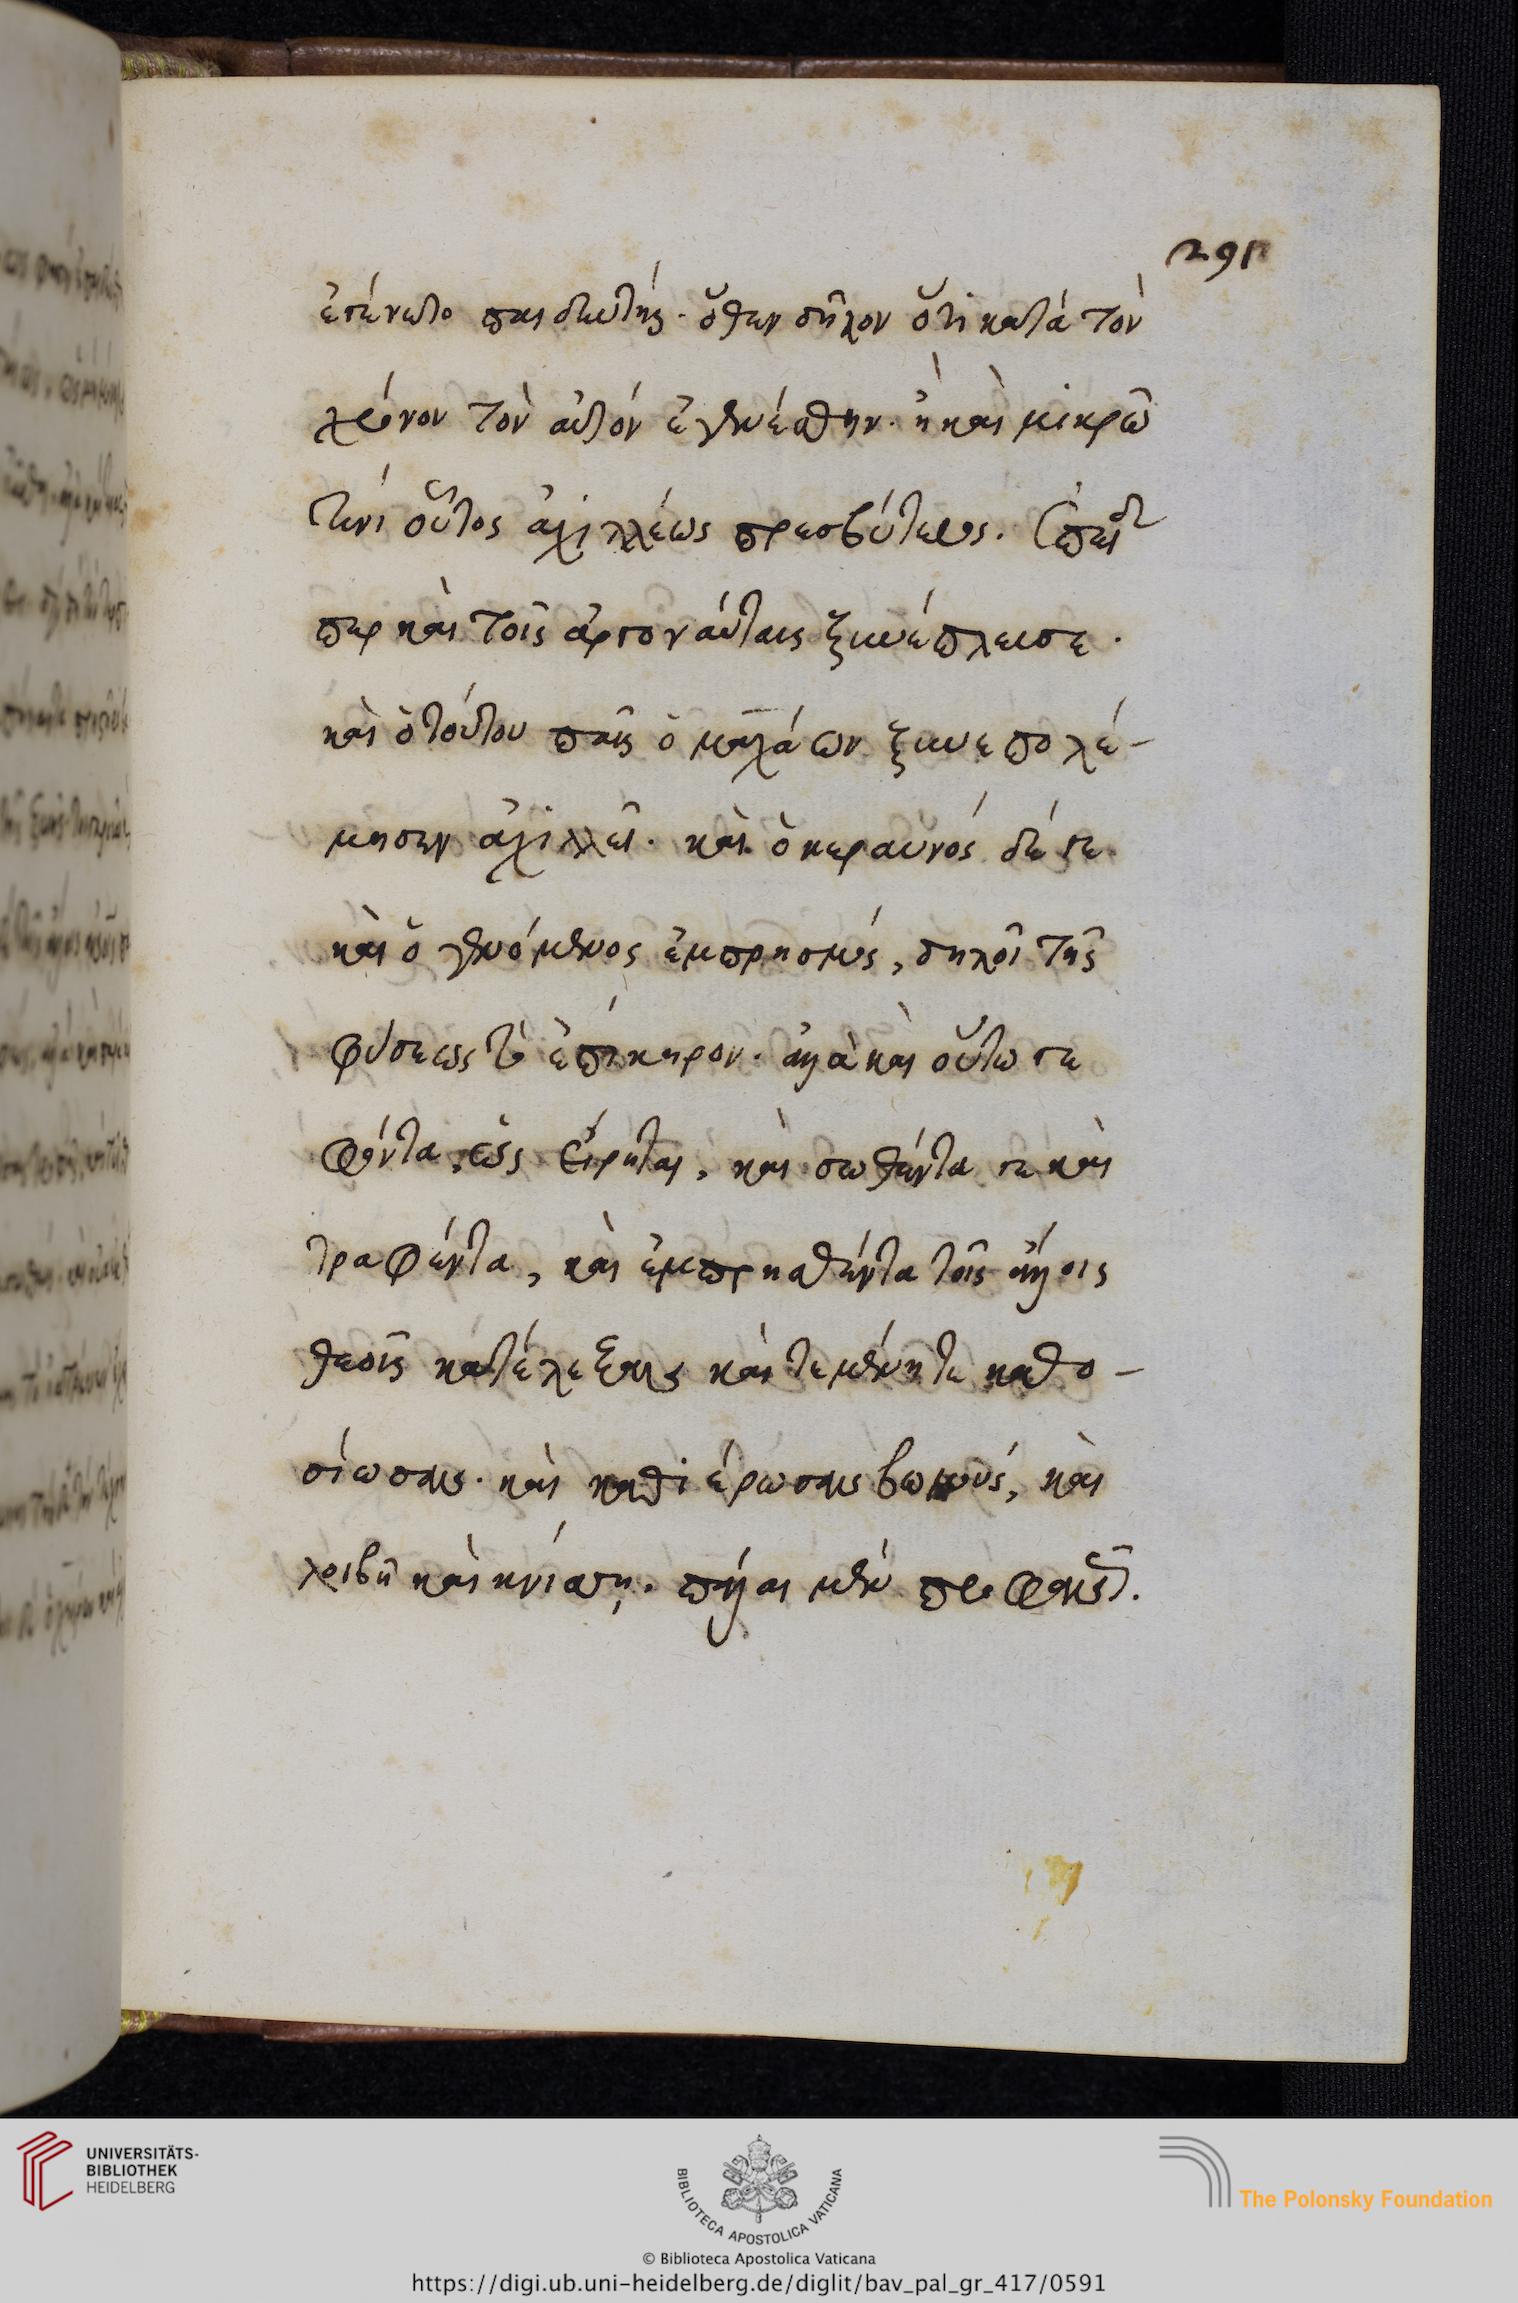 291
ἐγένετο παιδευτής. ὅθεν δῆλον ὅτι κατὰ τὸν
χρόνον τὸν αὐτὸν ἐγενέσθην. ἢ καὶ μικρῶ
τινὶ οὗτος ἀχιλλέως πρεσβύτερος. ἐπειδή
περ καὶ τοῖς ἀργοναύταις ξυνέπλευσε.
καὶ ὁ τούτου παῖς ὁ μαχάων ξυνεπολέ-
μησεν ἀχιλλεῖ. καὶ ὁ κεραυνός δέ γε
καὶ ὁ γενόμενος ἐμπρησμός, δηλοῖ τῆς
φύσεως τὸ ἐπίκηρον. ἀλλὰ καὶ οὕτω γε
φύντα, ὡς εἴρηται, καὶ σωθέντα γε καὶ
τραφέντα, καὶ ἐμπρησθέντα τοῖς ἄλλοις
θεοῖς κατέλεξας καὶ τεμένη τε καθο-
σίωσας. καὶ καθιέρωσας βωμούς, καὶ
λοιβῇ καὶ κνίσσῃ. πάλαι μὲν προφανῶς.
UNIVERSITÄTS-
BIBLIOTHEK
HEIDELBERG
BIBLIOTECA APOSTOLICA VATICANA
The Polonsky Foundation
© Biblioteca Apostolica Vaticana
https://digi.ub.uni-heidelberg.de/diglit/bav_pal_gr_417/0591